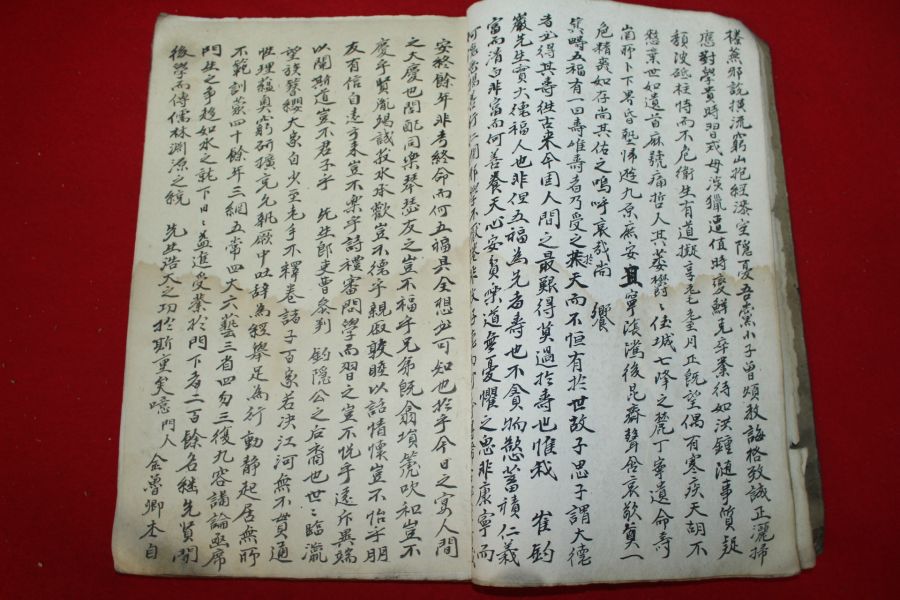 榛蕪邪說橫流窮山抱經漆室隱憂吾黨小子曾頌敎誨格致誠正灑掃
應對學貴時習戒毋淡獵遭值時變鮮克卒業待如洪鍾随事質疑
頹波砥柱特而不危衛生有道擬享耄耋月正旣望偶有寒疾天胡不
憖棄世如遺首麻號痛哲人其萎欝欝佳城七降之麓丁寧遺命壽
崗所卜下署昏埶帰遊九京無安且寧淚濱後昆齋聲含哀敬奠一
危精爽如存尚其佑之嗚呼哀哉尚 饗
箕疇五福有一曰壽雖壽者乃受之於天而不恒有於世故子思子謂大德
者必得其壽徃古来今固人間之最艱得莫過於壽也惟我 崔釣
巖先生實大德福人也非但五福為先者壽也不貪物慾蓄積仁義
富而清白非富而何善養天心安貧樂道無憂懼之患非康寧而
安終餘年非考終命而何五福具全想必可知也於乎今日之宴人間
之大慶也閤配同樂琴瑟友之豈不福乎兄弟旣翕塤箎吹和豈不
慶乎賢胤竭誠菽水承歡豈不德乎親戚敦睦以話情懷豈不怡乎朋
友有信自遠方来豈不樂乎詩禮審問學而習之豈不悅乎遠斥異端
以闢斯道豈不君子乎 先生郎吏曹參判 釣隱公之后裔也世世臨瀛
望族簪纓大家自少至老手不釋卷諸子百家若决江河無不貫通
性理蘊奥窮研擴充允執厥中吐辞為經舉足為行動静起居無所
不範訓蒙四十餘年三綱五常四大六藝三省四勿三復九容講論函席
問生之事趍如水之就下日日益進受業於門下者二百餘名継先賢開
後學而傳儒林淵源之統 先生浩大之功於斯重矣噫門人 金魯卿本自